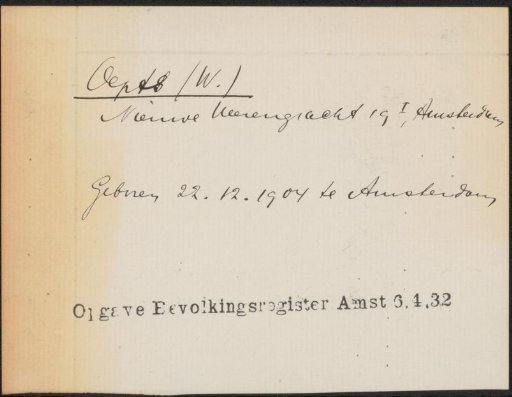 Oepts (W.)
Nieuwe Heerengracht 19 I, Amsterdam
Geboren 22.12.1904 te Amsterdam
Opgave Bevolkingsregister Amst 6.4.32